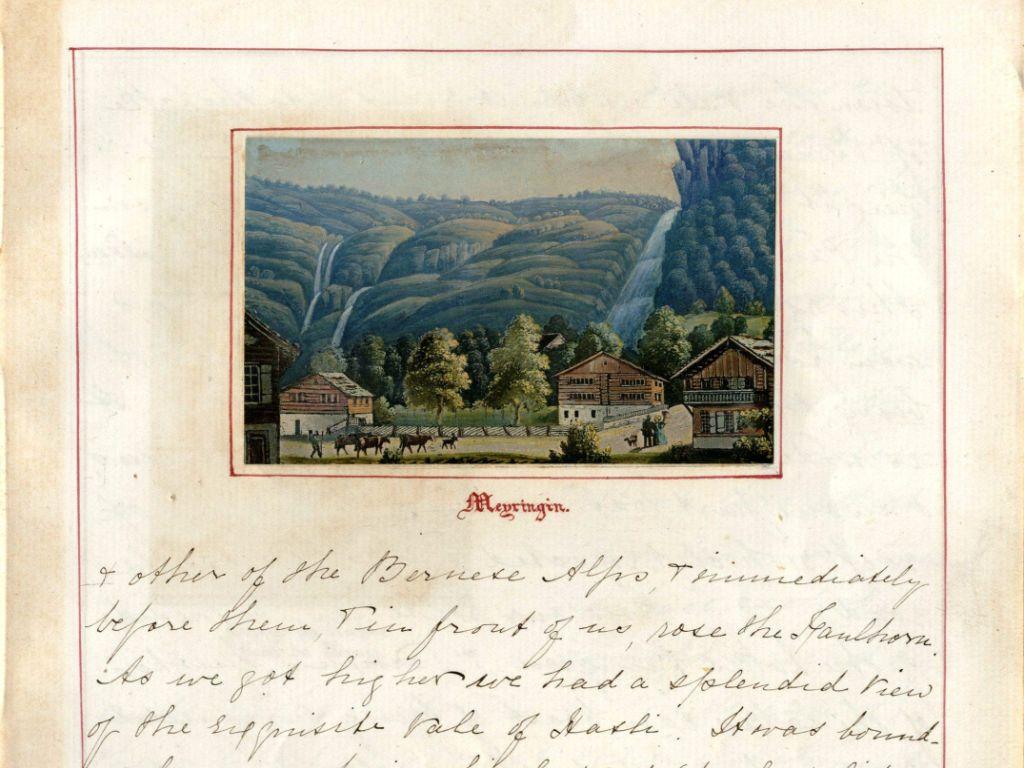 Meyringin.
& other of the Bernese Alps, & immediately
before them, & in front of us, rose the Faulhorn.
As we got higher we had a splendid view
of the exquisite Vale of Hasli. It was bound-